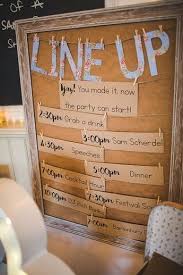 LINE UP
Yay! You made it, now
the party can start!
2:30pm Grab a drink
3:00pm Sam Scherdel
4:30pm Speeches
5:00pm Dinner
7:00pm Cocktail Hour
7:30pm Festival
10:00pm DJ
12:00am